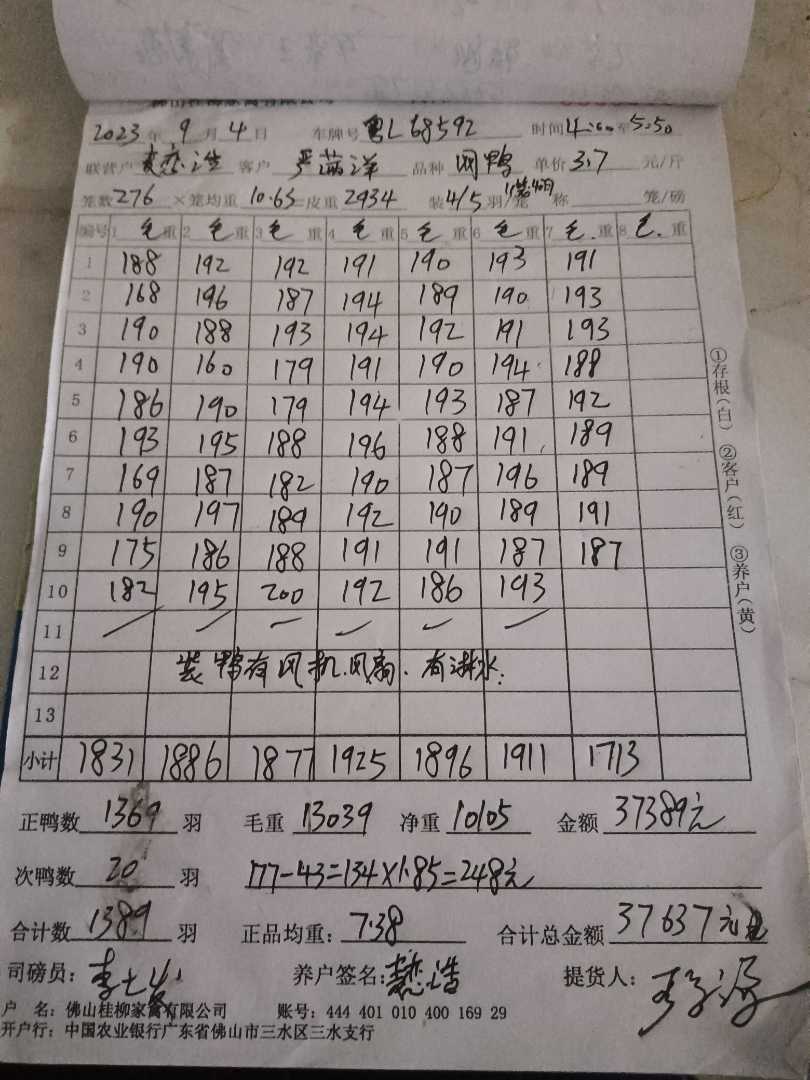 2023年9月4日 车牌号 粤L68592 时间4:20至5:50
联营户 浩 客户 严满洋 品种 肉鸭 单价3.7元/斤
笼数276×笼均重10.63=皮重2934 装4/5羽/笼 称 笼/磅
编号 1毛重 2毛重 3毛重 4毛重 5毛重 6毛重 7毛.重 8毛.重
1 188 192 192 191 190 193 191
2 168 196 187 194 189 190 193
3 190 188 193 194 192 191 193
4 190 160 179 191 190 194 188
5 186 190 179 194 193 187 192
6 193 195 188 196 188 191 189
7 169 187 182 190 187 196 189
8 190 197 189 192 190 189 191
9 175 186 188 191 191 187 187
10 182 195 200 192 186 193
11
12 装鸭有风机.风扇.有淋水.
13
小计 1831 1886 1877 1925 1896 1911 1713
正鸭数 1369 羽 毛重 13039 净重 10105 金额 37389元
次鸭数 20 羽 177-43=134×1.85=248元
合计数 1389 羽 正品均重: 7.38 合计总金额 37637元
司磅员: 李 养户签名: 浩 提货人:
户 名: 佛山桂柳家禽有限公司 账号: 444 401 010 400 169 29
开户行: 中国农业银行广东省佛山市三水区三水支行
①存根(白) ②客户(红) ③养户(黄)